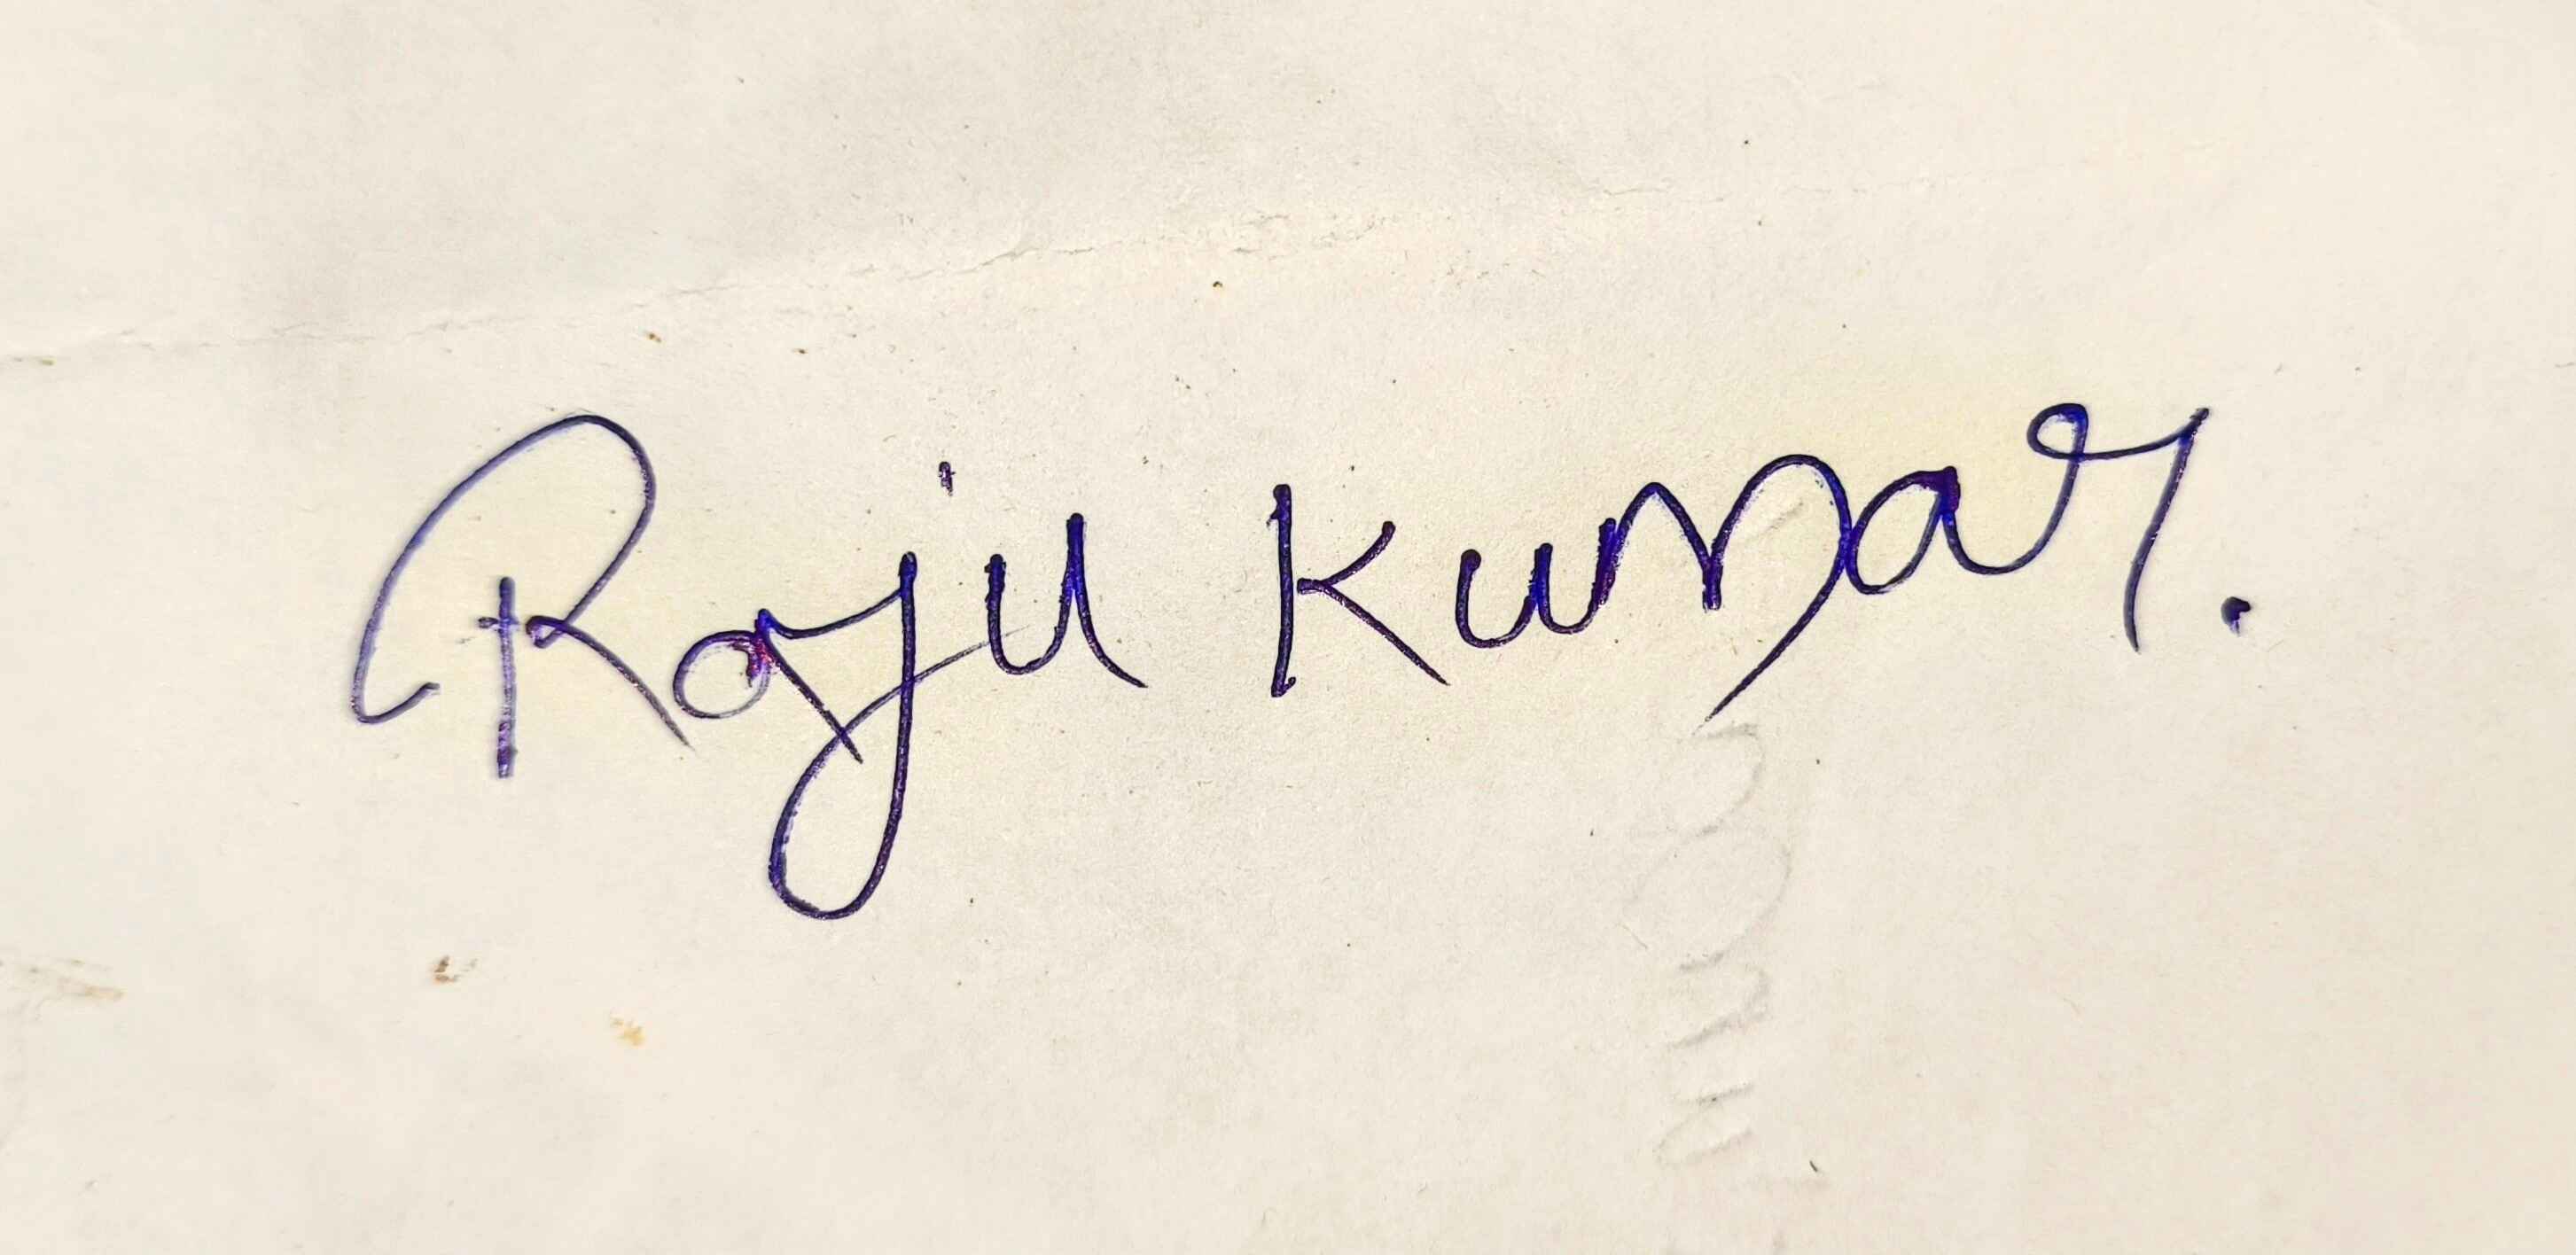 Raju Kumar.